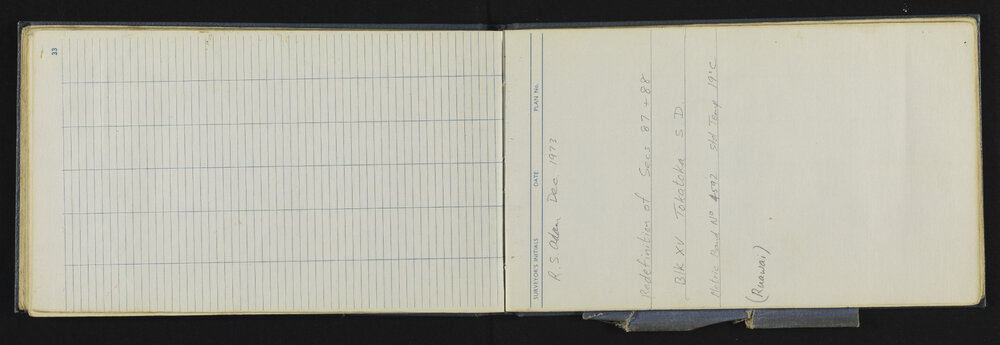 33
SURVEYOR'S INITIALS DATE PLAN No.
R. S. Aden Dec 1973
Redefinition of Secs 87 + 88
Blk XV Tokatoka S D.
Metric Band Nº 4592 Std Temp 19°C
(Ruawai)